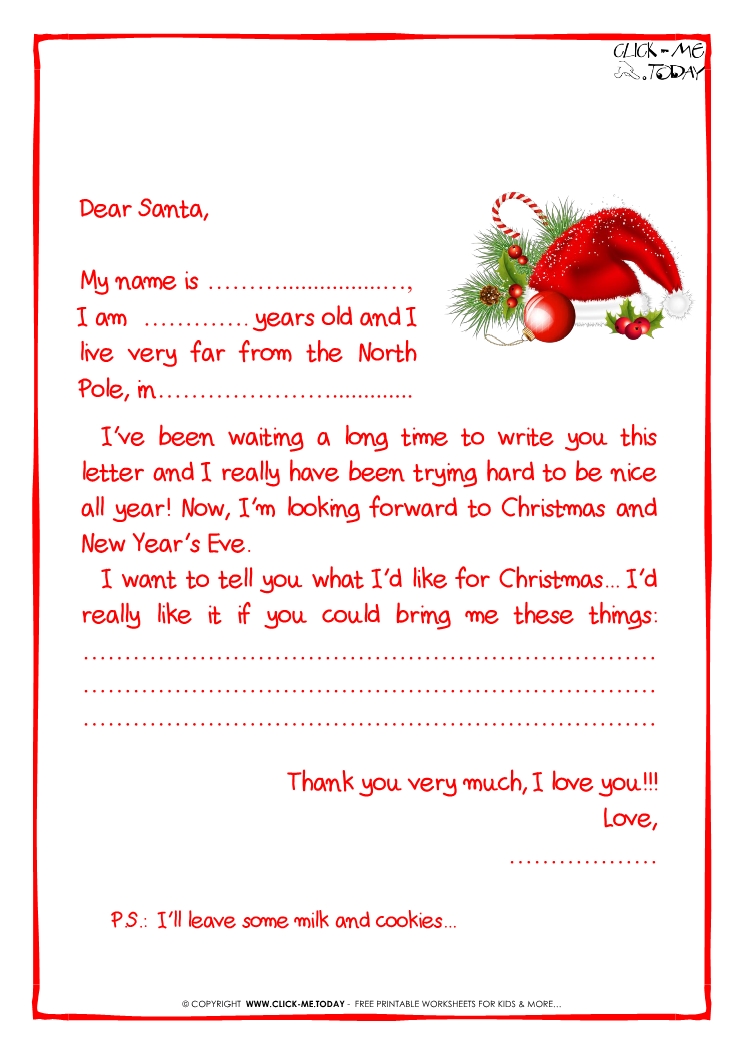 CLICK-ME
.TODAY
Dear Santa,
My name is ………................…,
I am …………. years old and I
live very far from the North
Pole, in…………………............
I've been waiting a long time to write you this
letter and I really have been trying hard to be nice
all year! Now, I'm looking forward to Christmas and
New Year's Eve.
I want to tell you what I'd like for Christmas... I'd
really like it if you could bring me these things:
……………………………………………………………
……………………………………………………………
……………………………………………………………
Thank you very much, I love you!!!
Love,
………………
P.S.: I'll leave some milk and cookies...
© COPYRIGHT WWW.CLICK-ME.TODAY - FREE PRINTABLE WORKSHEETS FOR KIDS & MORE...